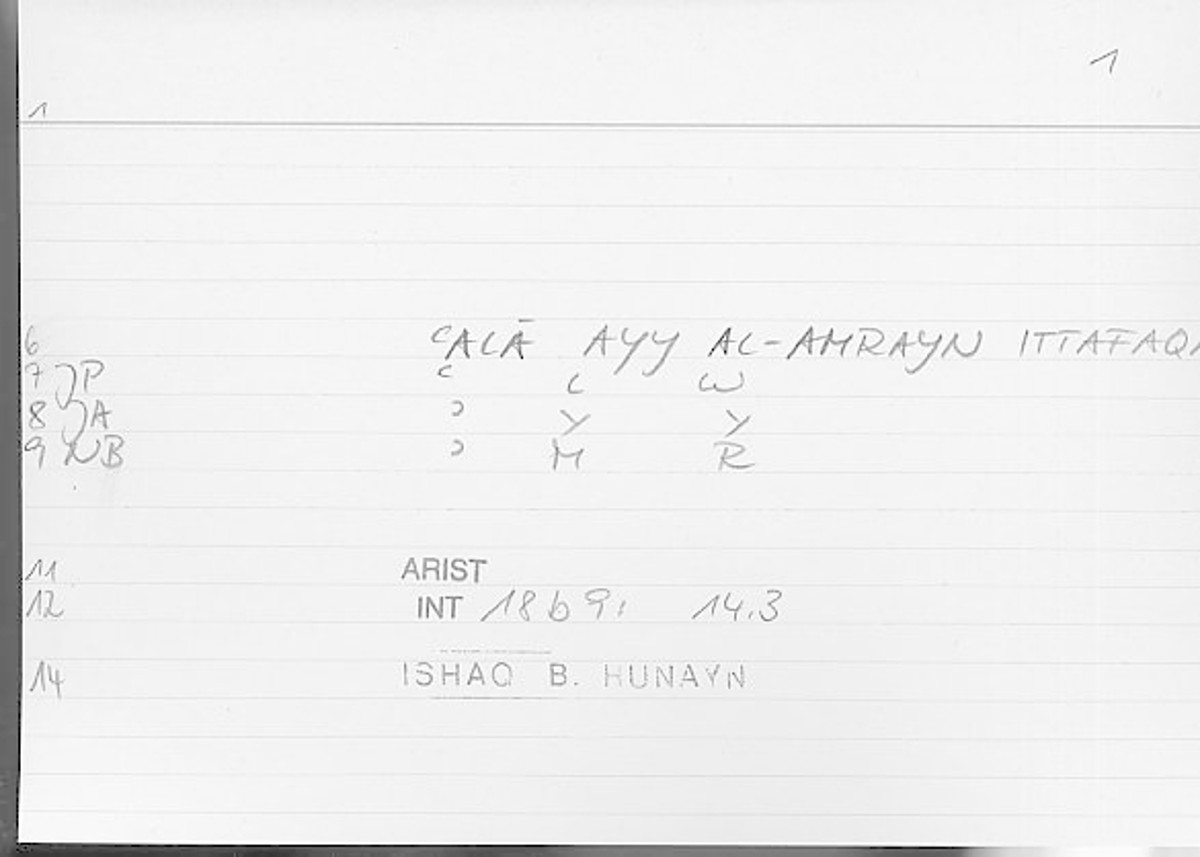 1
1
6 ʿALĀ AYY AL-AMRAYN ITTAFAQA
7 JP ʿ L W
8 JA ʾ Y Y
9 NB ʾ M R
11 ARIST
12 INT 18b9: 14.3
14 ISHAQ B. HUNAYN